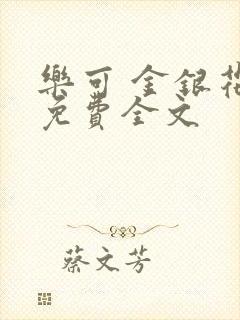 樂可 金銀花
免費全文
蔡文芳